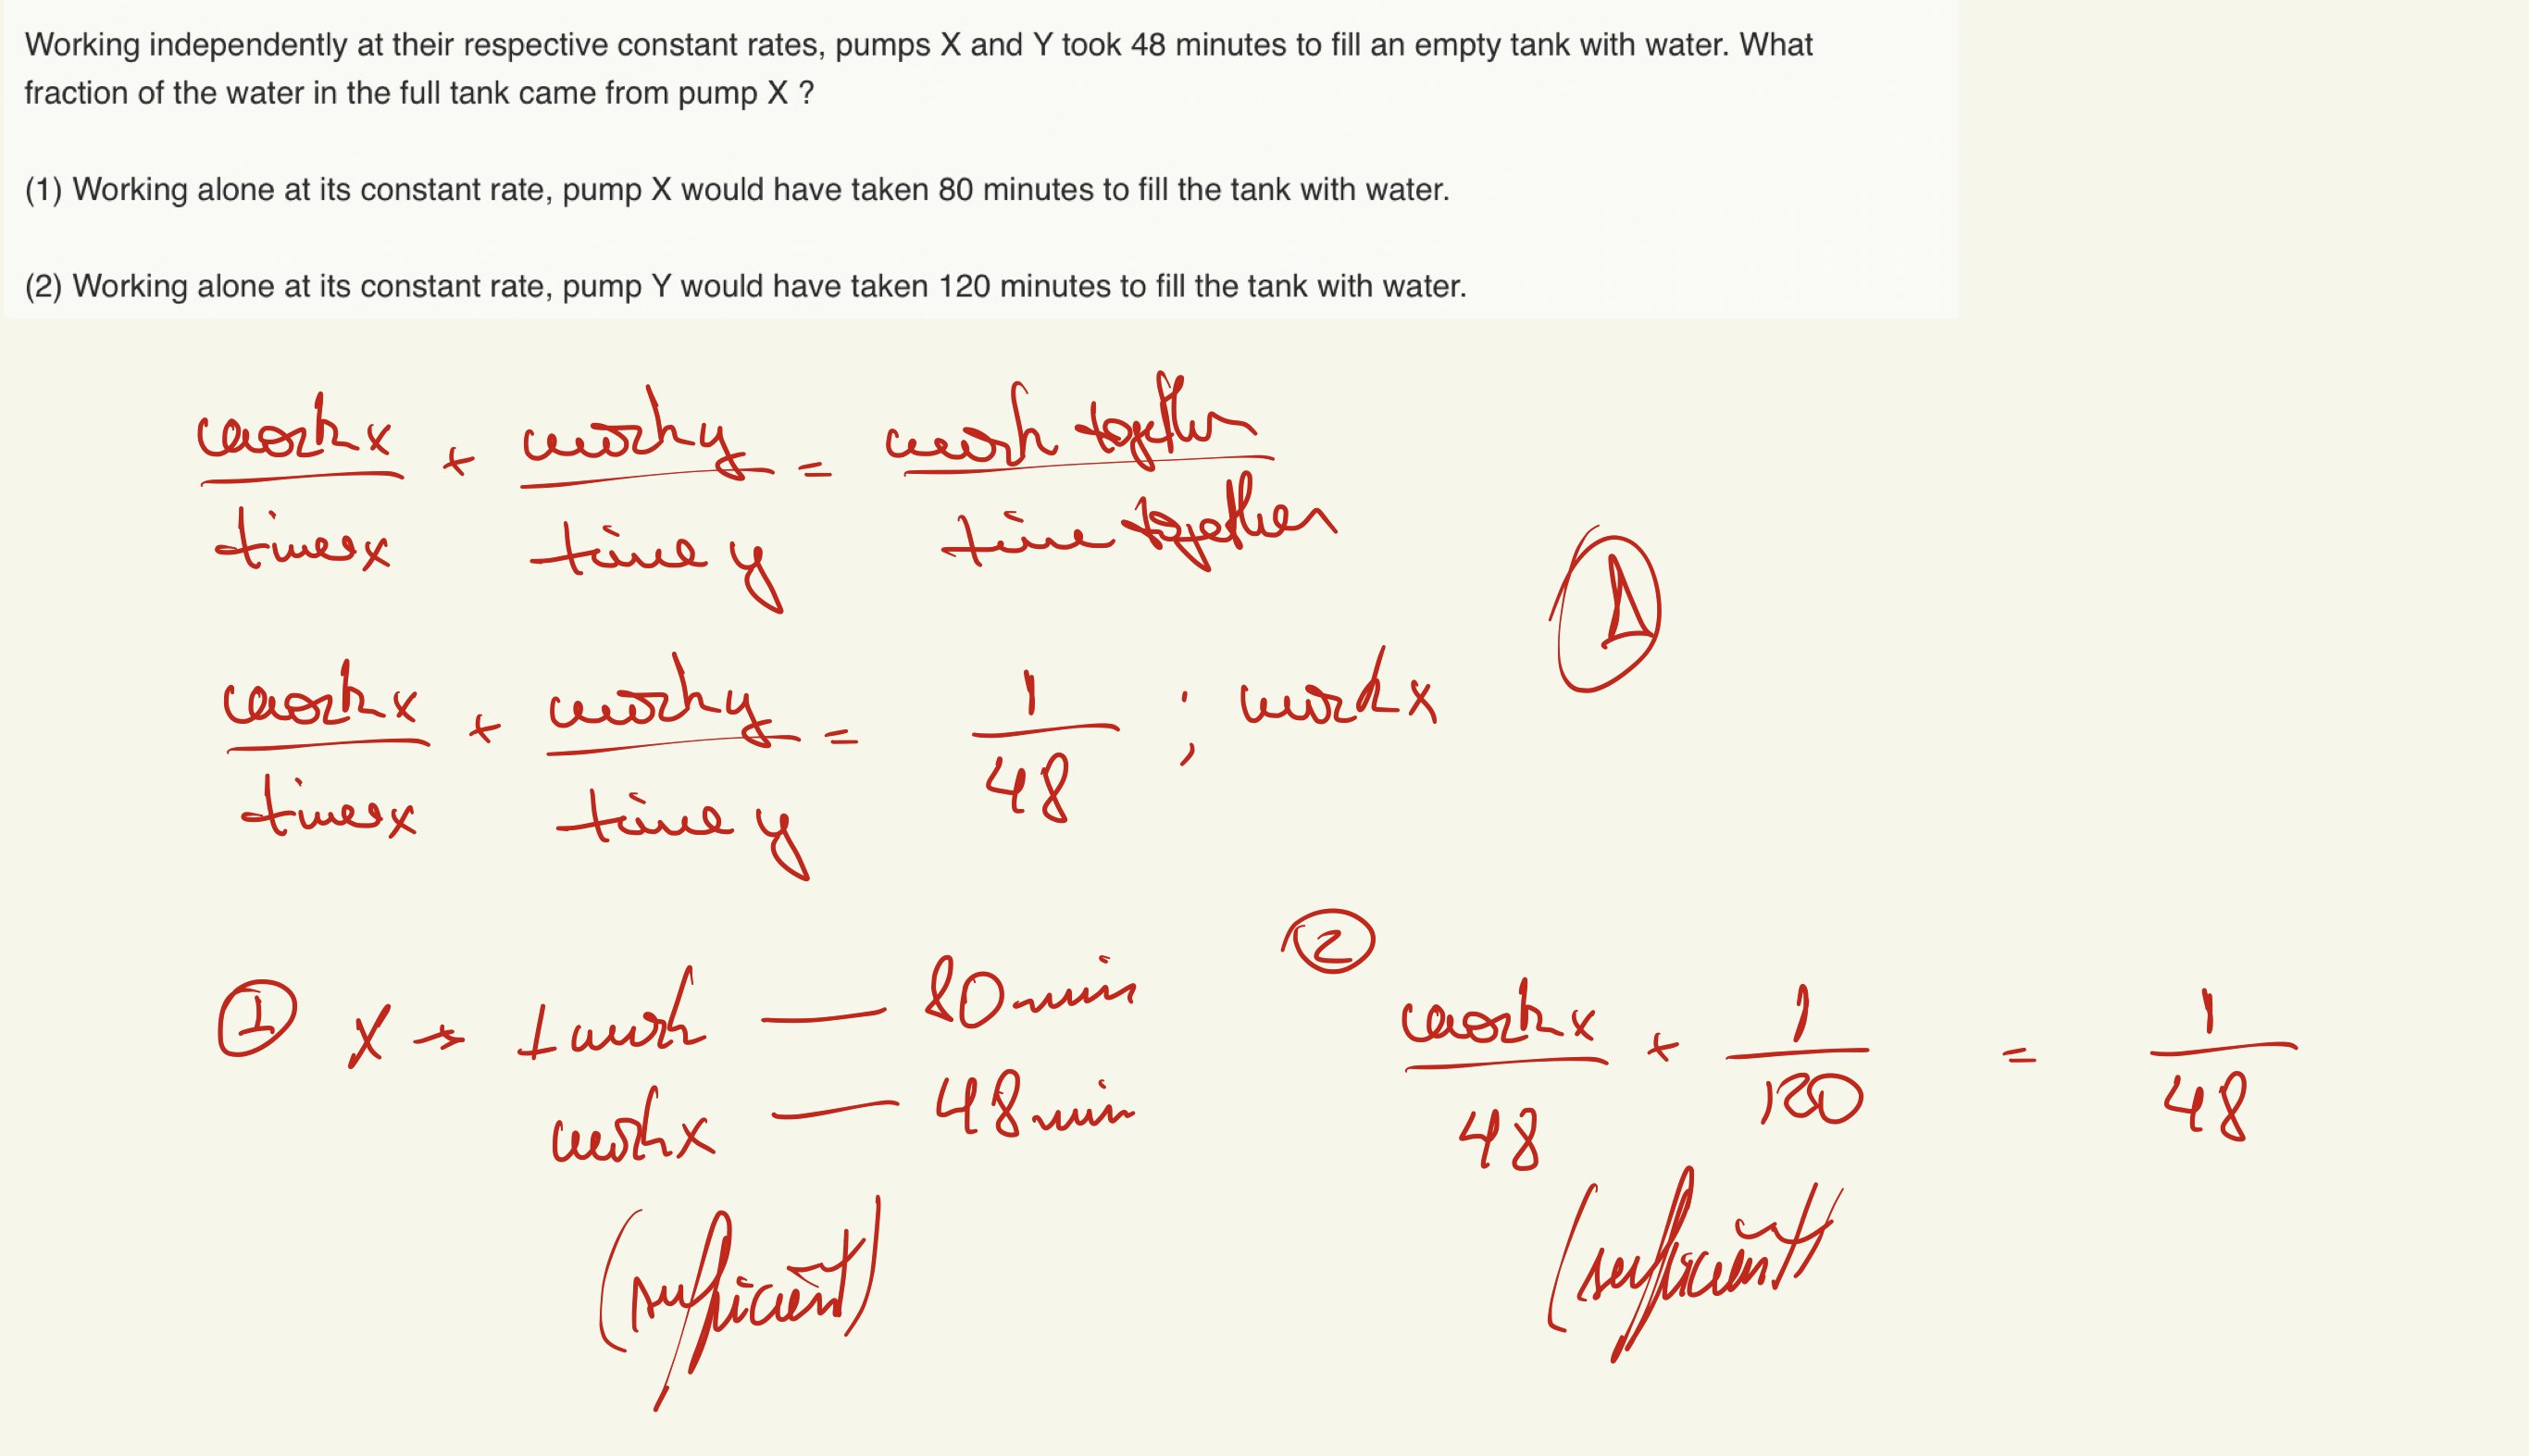 Working independently at their respective constant rates, pumps X and Y took 48 minutes to fill an empty tank with water. What
fraction of the water in the full tank came from pump X ?
(1) Working alone at its constant rate, pump X would have taken 80 minutes to fill the tank with water.
(2) Working alone at its constant rate, pump Y would have taken 120 minutes to fill the tank with water.
work x + work y = work together
time x time y time together
D
work x + work y = 1 ; work x
time x time y 48
① X → 1 work — 80 min
work x — 48 min
(sufficient)
②
work x + 1 = 1
48 120 48
(sufficient)